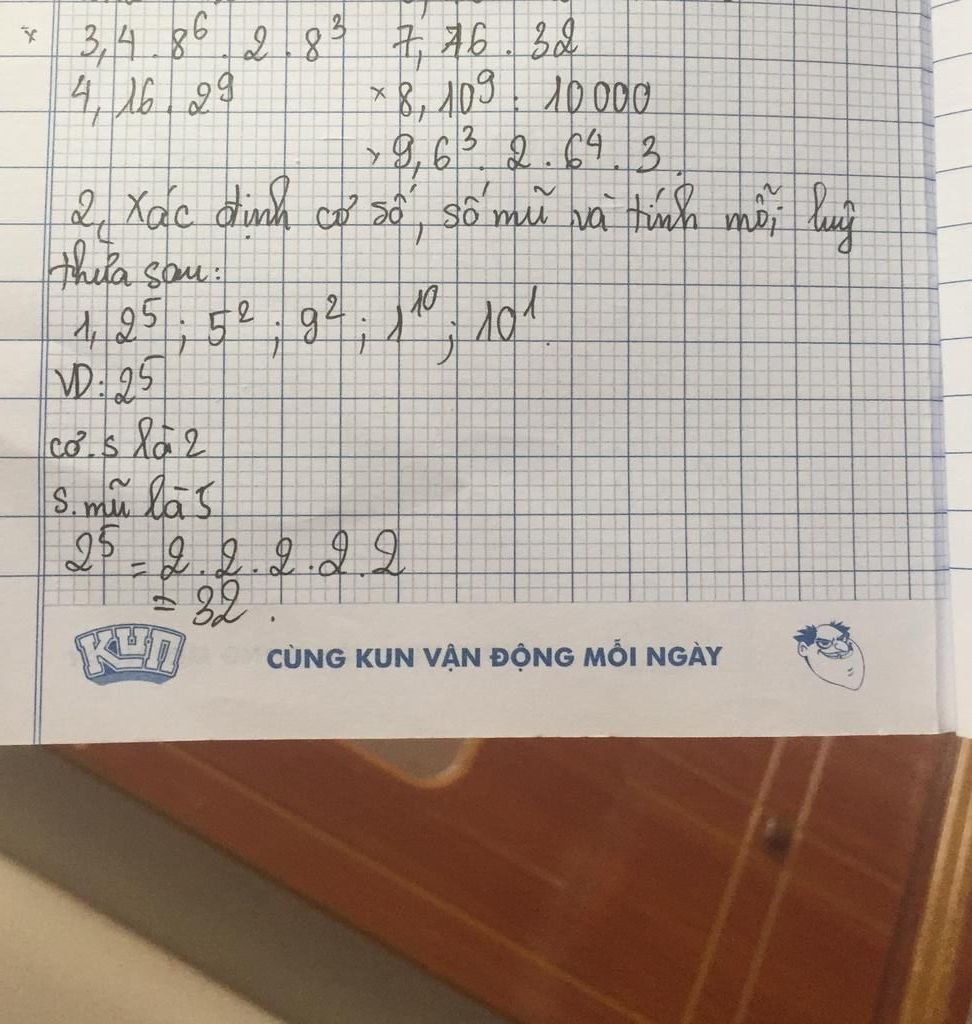 x 3, 4 . 8⁶ . 2 . 8³ 7, 16 . 32
4, 16 . 2⁹ x 8, 10⁹ : 10 000
x 9, 6³ . 2 . 6⁴ . 3.
2, Xác định cơ số, số mũ và tính mỗi luỹ
thừa sau:
1, 2⁵ ; 5² ; 9² ; 1¹⁰ ; 10¹.
VD: 2⁵
cơ.s là 2
s.mũ là 5
2⁵ = 2 . 2 . 2 . 2 . 2
= 32 .
KUN CÙNG KUN VẬN ĐỘNG MỖI NGÀY